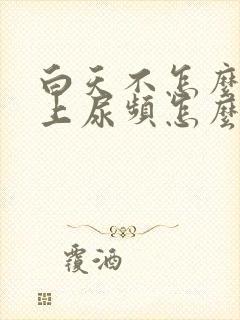 白天不怎麼
上尿頻怎麼
覆酒